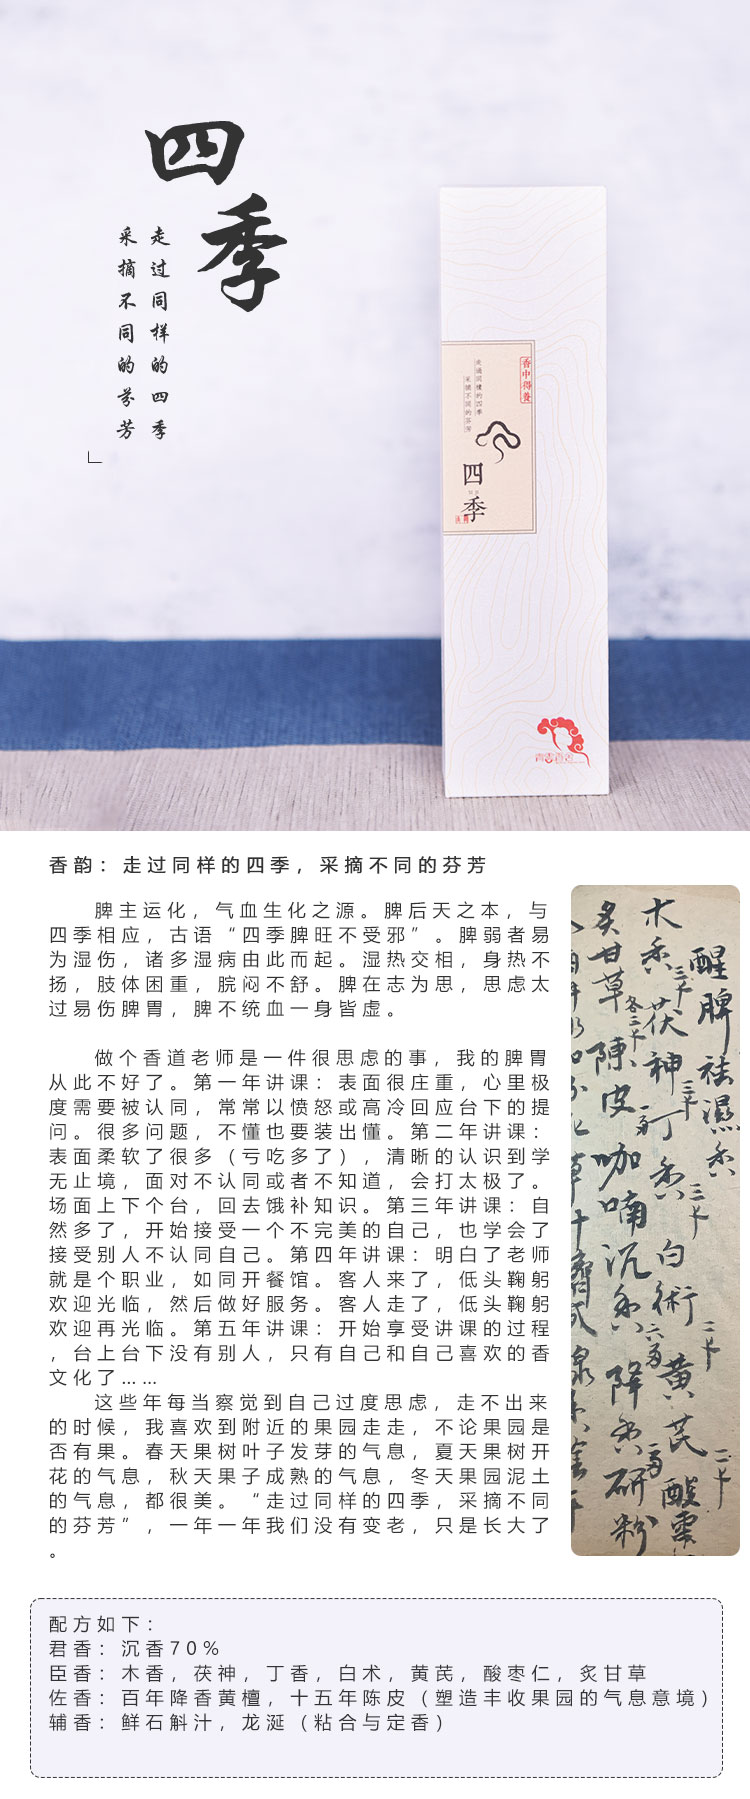 四季
走过同样的四季
采摘不同的芬芳
香中得养
走过同样的四季
采摘不同的芬芳
四季
香韵：走过同样的四季，采摘不同的芬芳
脾主运化，气血生化之源。脾后天之本，与
四季相应，古语“四季脾旺不受邪”。脾弱者易
为湿伤，诸多湿病由此而起。湿热交相，身热不
扬，肢体困重，脘闷不舒。脾在志为思，思虑太
过易伤脾胃，脾不统血一身皆虚。
做个香道老师是一件很思虑的事，我的脾胃
从此不好了。第一年讲课：表面很庄重，心里极
度需要被认同，常常以愤怒或高冷回应台下的提
问。很多问题，不懂也要装出懂。第二年讲课：
表面柔软了很多（亏吃多了），清晰的认识到学
无止境，面对不认同或者不知道，会打太极了。
场面上下个台，回去饿补知识。第三年讲课：自
然多了，开始接受一个不完美的自己，也学会了
接受别人不认同自己。第四年讲课：明白了老师
就是个职业，如同开餐馆。客人来了，低头鞠躬
欢迎光临，然后做好服务。客人走了，低头鞠躬
欢迎再光临。第五年讲课：开始享受讲课的过程
，台上台下没有别人，只有自己和自己喜欢的香
文化了……
这些年每当察觉到自己过度思虑，走不出来
的时候，我喜欢到附近的果园走走，不论果园是
否有果。春天果树叶子发芽的气息，夏天果树开
花的气息，秋天果子成熟的气息，冬天果园泥土
的气息，都很美。“走过同样的四季，采摘不同
的芬芳”，一年一年我们没有变老，只是长大了
。
醒脾祛濕香
木香三卜茯神三卜丁香三卜白術二卜黄芪二卜酸棗
炙甘草各三卜陳皮咖喃沉香六降香研粉
配方如下：
君香：沉香70%
臣香：木香，茯神，丁香，白术，黄芪，酸枣仁，炙甘草
佐香：百年降香黄檀，十五年陈皮（塑造丰收果园的气息意境）
辅香：鲜石斛汁，龙涎（粘合与定香）